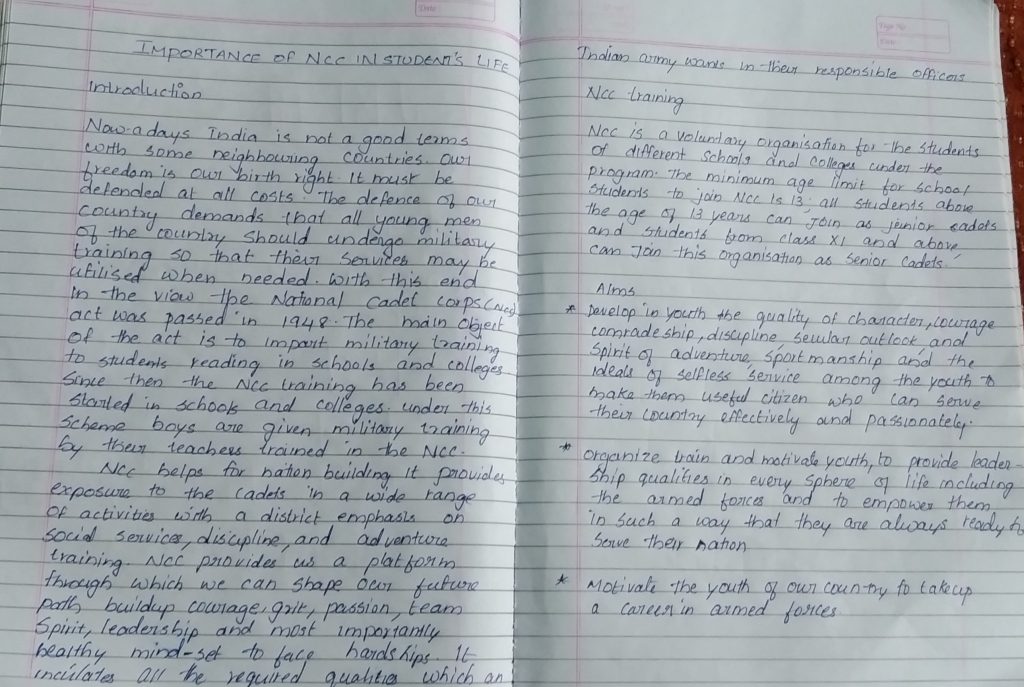 Date
IMPORTANCE OF NCC IN STUDENT'S LIFE
Introduction
Now-a days India is not a good terms
with some neighbouring countries. Our
freedom is our birth right. It must be
defended at all costs. The defence of our
country demands that all young men
of the country should undengo military
training so that their services may be
utilised when needed. with this end
in the view the National cadet corps (Ncc)
act was passed in 1948. The main object
of the act is to impart military training
to students reading in schools and colleges
Since then the Ncc training has been
started in schools and colleges. under this
Scheme boys are given military training
by their teachers trained in the NCC.
Ncc helps for nation building It provides
exposure to the cadets in a wide range
of activities with a district emphasis on
social services, discipline, and adventure
training. NCC provides us a platform
through which we can shape our future
path buildup courage, grit, passion, team
Spirit, leadership and most importantly
healthy mind-set to face hardships. It
inculates all the required qualities which an
Page No
Date
Indian army wants in their responsible officers
Ncc training
Ncc is a voluntary organisation for the students
of different schools and colleges under the
program. The minimum age limit for school
students to join Ncc is 13; all students above
the age of 13 years can join as junior cadets
and students from class XI and above
can Join this organisation as senior cadets.
Aims
* Develop in youth the quality of character, courage
comradeship, discipline, secular outlook and
Spirit of adventure, sportmanship and the
ideals of selfless service among the youth to
make them useful citizen who can serve
their country effectively and passionately.
* organize train and motivate youth, to provide leader-
ship qualities in every sphere of life including
the armed forces and to empower them
in such a way that they are always ready to
serve their nation
* Motivate the youth of our country to takeup
a career in armed forces.